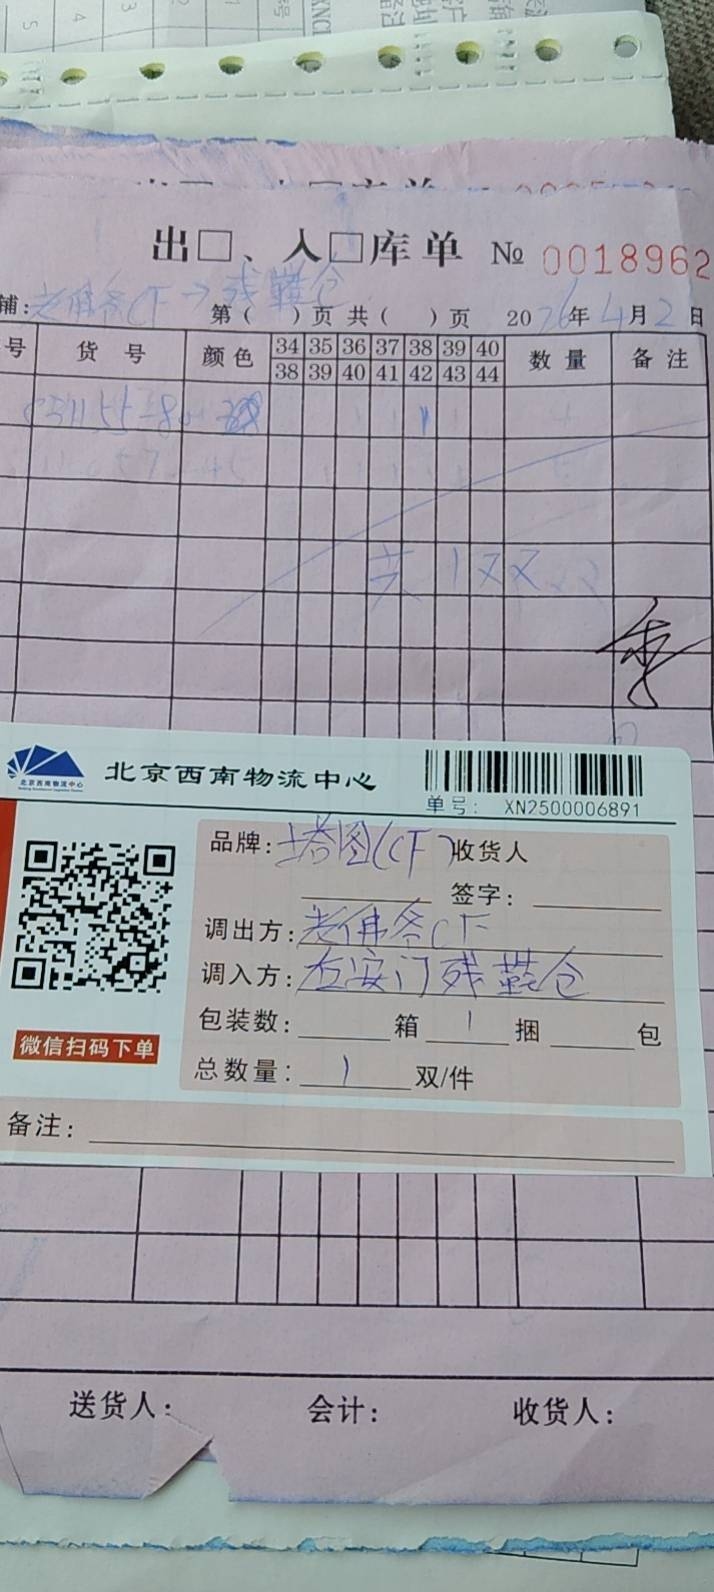 出□、入□库单 № 0018962
铺: 老佛爷CF → 残鞋仓
第( )页 共( )页 2026年4月2日
号 货号 颜色 34 35 36 37 38 39 40 数量 备注
38 39 40 41 42 43 44
1
共1双
北京西南物流中心
单号: XN2500006891
品牌: 塔图(CF) 收货人
签字:
调出方: 老佛爷CF
调入方: 左安门残鞋仓
包装数: 箱 1 捆 包
总数量: 1 双/件
微信扫码下单
备注:
送货人: 会计: 收货人: